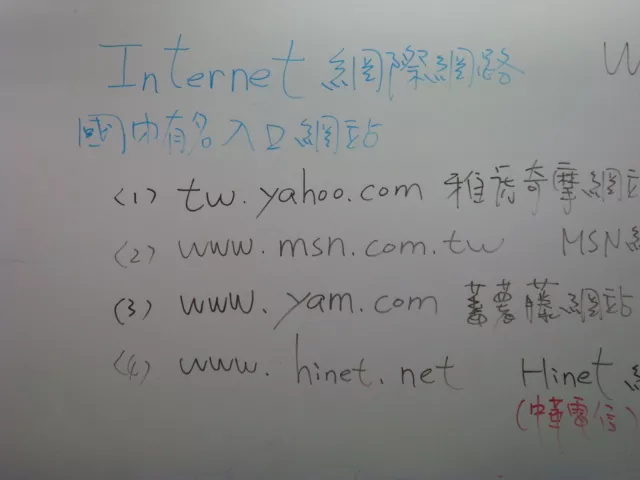 Internet 網際網路 W
國內有名入口網站
(1) tw.yahoo.com 雅虎奇摩網站
(2) www.msn.com.tw MSN 網
(3) www.yam.com 蕃薯藤網站
(4) www.hinet.net Hinet 網
(中華電信)